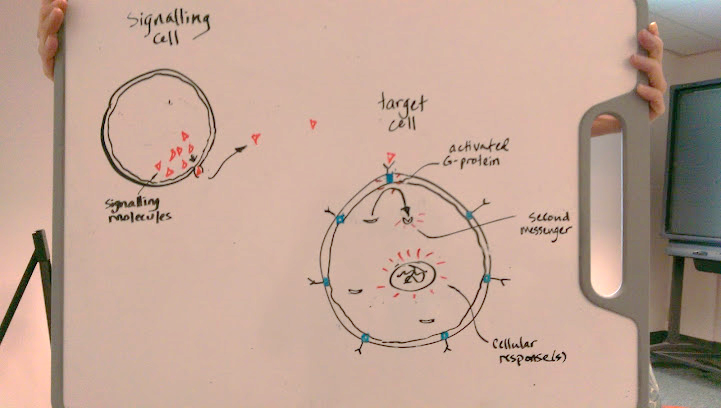 signalling
cell
signalling
molecules
target
cell
activated
G-protein
second
messenger
cellular
response(s)